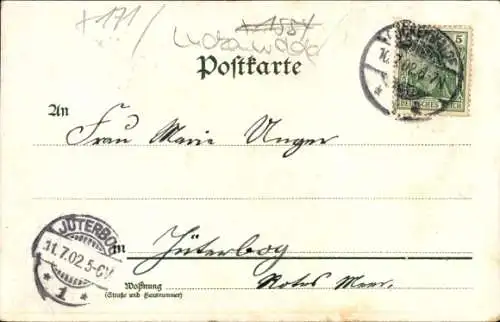 +171/
*1554
Luckenwalde
Postkarte
5
LUCKENWALDE
10.7.02.
DEUTSCHES REICH
An
Frau Marie Unger
JÜTERBOG
11.7.02.5-6V.
* 1 *
in Jüterbog
Wohnung
(Straße und Hausnummer)
Rotes Meer.